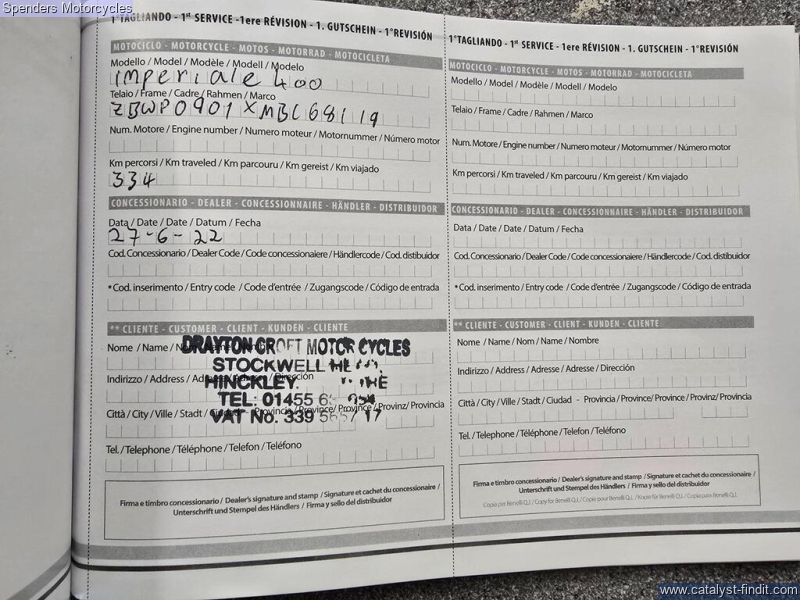 Spenders Motorcycles
1°TAGLIANDO - 1st SERVICE -1ere RÉVISION - 1. GUTSCHEIN - 1°REVISIÓN
MOTOCICLO - MOTORCYCLE - MOTOS - MOTORRAD - MOTOCICLETA
Modello / Model / Modèle / Modell / Modelo
Imperiale 400
Telaio / Frame / Cadre / Rahmen / Marco
Num. Motore / Engine number / Numero moteur / Motornummer / Número motor
Km percorsi / Km traveled / Km parcouru / Km gereist / Km viajado
334
CONCESSIONARIO - DEALER - CONCESSIONNAIRE - HÄNDLER - DISTRIBUIDOR
Data / Date / Date / Datum / Fecha
27-6-22
Cod. Concessionario / Dealer Code / Code concessionaiere / Händlercode / Cod. distibuidor
*Cod. inserimento / Entry code / Code d'entrée / Zugangscode / Código de entrada
** CLIENTE - CUSTOMER - CLIENT - KUNDEN - CLIENTE
Nome / Name /
DRAYTON CROFT MOTOR CYCLES
STOCKWELL
Indirizzo / Address / Dirección
HINCKLEY.
TEL: 01455
Città / City / Ville / Stadt / Ciudad - Provincia / Province/ Province / Provinz/ Provincia
VAT No. 339
Tel. / Telephone / Téléphone / Telefon / Teléfono
Firma e timbro concessionario / Dealer's signature and stamp / Signature et cachet du concessionaire /
Unterschrift und Stempel des Händlers / Firma y sello del distribuidor
1°TAGLIANDO - 1st SERVICE - 1ere RÉVISION - 1. GUTSCHEIN - 1°REVISIÓN
MOTOCICLO - MOTORCYCLE - MOTOS - MOTORRAD - MOTOCICLETA
Modello / Model / Modèle / Modell / Modelo
Telaio / Frame / Cadre / Rahmen / Marco
Num. Motore / Engine number / Numero moteur / Motornummer / Número motor
Km percorsi / Km traveled / Km parcouru / Km gereist / Km viajado
CONCESSIONARIO - DEALER - CONCESSIONNAIRE - HÄNDLER - DISTRIBUIDOR
Data / Date / Date / Datum / Fecha
Cod. Concessionario / Dealer Code / Code concessionaiere / Händlercode / Cod. distibuidor
*Cod. inserimento / Entry code / Code d'entrée / Zugangscode / Código de entrada
** CLIENTE - CUSTOMER - CLIENT - KUNDEN - CLIENTE
Nome / Name / Nom / Name / Nombre
Indirizzo / Address / Adresse / Adresse / Dirección
Città / City / Ville / Stadt / Ciudad - Provincia / Province/ Province / Provinz/ Provincia
Tel. / Telephone / Téléphone / Telefon / Teléfono
Firma e timbro concessionario / Dealer's signature and stamp / Signature et cachet du concessionaire /
Unterschrift und Stempel des Händlers / Firma y sello del distribuidor
Copia per Benelli Q.J. / Copy for Benelli Q.J. / Copie pour Benelli Q.J. / Kopie für Benelli Q.J. / Copia para Benelli Q.J.
www.catalyst-findit.com